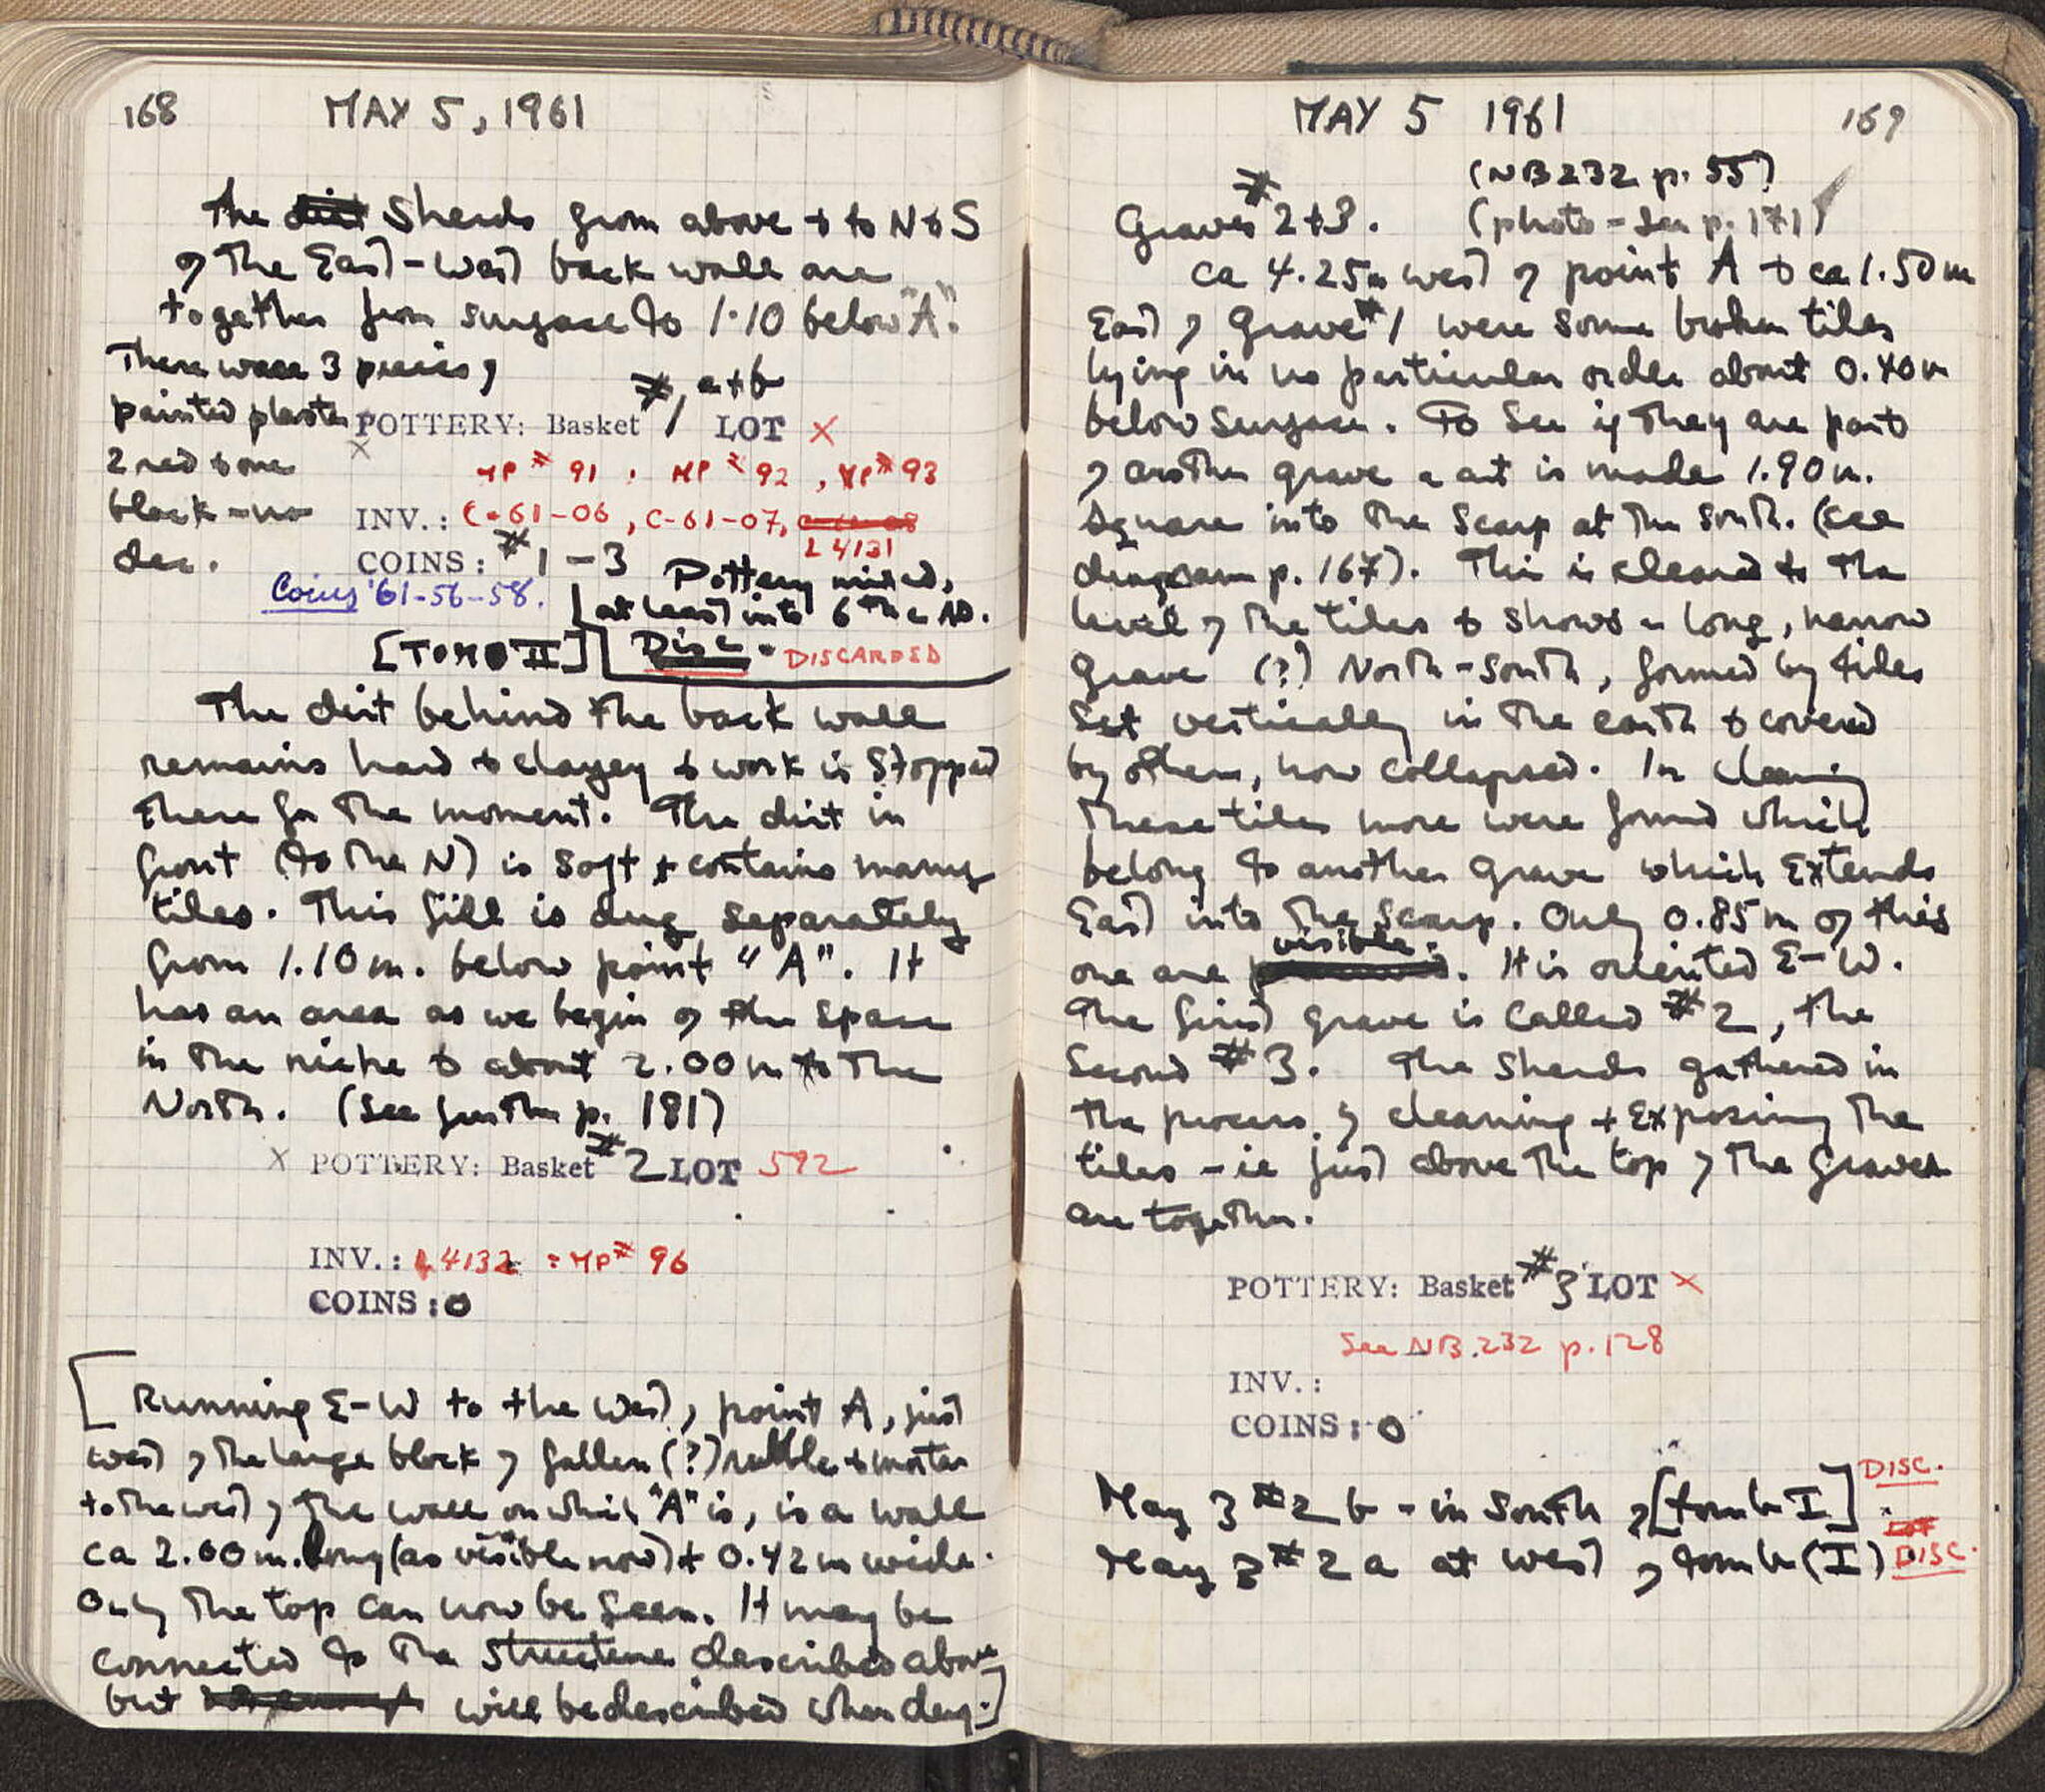 168 MAY 5, 1961
The dirt Sherds from above + to N + S
of the East-West back wall are
together from surface to 1.10 below "A".
There were 3 pieces of
painted plaster
2 red + one
black - no
dec.
#1 a+b
POTTERY: Basket LOT X
X
MP # 91, MP # 92, MP # 93
INV.: C-61-06, C-61-07, C-61-08
L 4131
COINS: #1-3
Coins '61-56-58.
Pottery mixed,
at least into 6th c AD.
[TOMB II] Disc. DISCARDED
The dirt behind the back wall
remains hard + clayey + work is stopped
there for the moment. The dirt in
front (to the N) is soft + contains many
tiles. This fill is dug separately
from 1.10 m. below point "A". It
has an area as we begin of the space
in the niche + about 2.00 m to the
North. (see further p. 181)
X POTTERY: Basket #2 LOT 592
INV.: L4132 = MP# 96
COINS: 0
[Running E-W to the West of point A, just
west of the large block of fallen (?) rubble + mortar
to the west of the wall on which "A" is, is a wall
ca 2.00 m. long (as visible now) + 0.42 m wide.
Only the top can now be seen. It may be
connected to the structure described above
but will be described when dug.]
MAY 5 1961 169
(NB 232 p. 55)
Graves #2+3. (photo - see p. 171)
ca 4.25m west of point A + ca 1.50m
East of Grave #1 were some broken tiles
lying in no particular order about 0.40m
below surface. To see if they are part
of another grave a cut is made 1.90m.
square into the scarp at the south. (see
diagram p. 167). This is cleared to the
level of the tiles + shows a long, narrow
grave (?) North-South, formed by tiles
set vertically in the earth + covered
by others, now collapsed. In cleaning
these tiles more were found which
belong to another grave which extends
East into the scarp. Only 0.85m of this
one are visible. It is oriented E-W.
The first grave is called #2, the
second #3. The sherds gathered in
the process of cleaning + exposing the
tiles - ie just above the top of the graves
are together.
POTTERY: Basket #3 LOT X
See NB.232 p.128
INV.:
COINS: 0
May 3 #2 b - in South of [tomb I] DISC.
May 3 #2 a at west of tomb (I) Lot DISC.